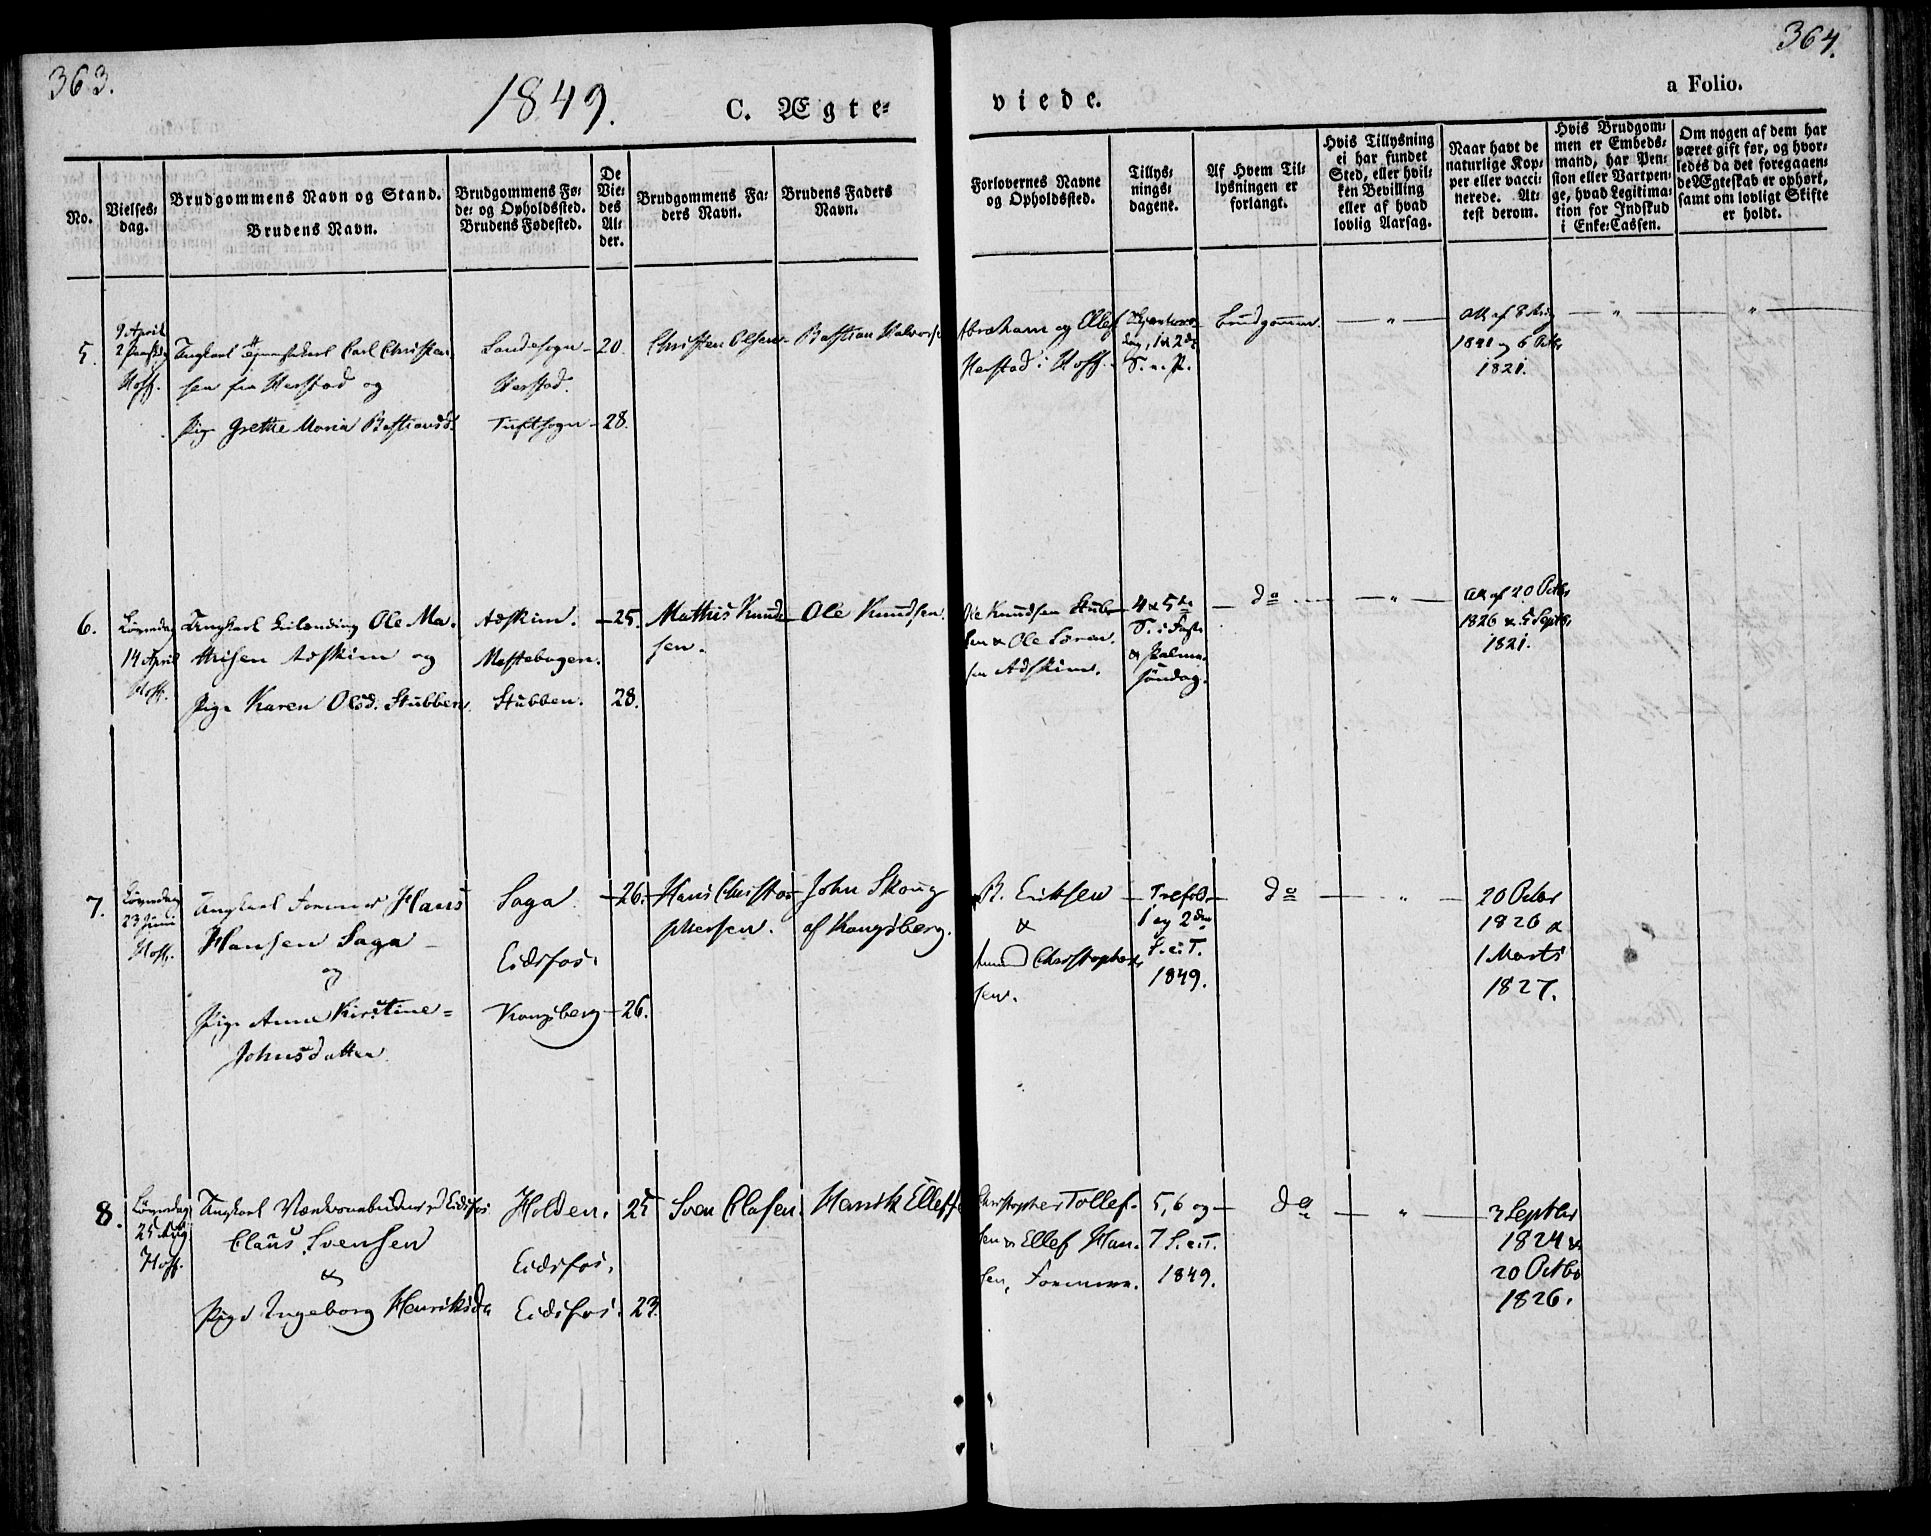 363.
364.
1849.
C. Ægte-
viede.
a Folio.
No.
Vielses-
dag.
Brudgommens Navn og Stand.
Brudens Navn.
Brudgommens Fø-
de- og Opholdssted.
Brudens Fødested.
De
Vie-
des
Al-
der.
Brudgommens Fa-
ders Navn.
Brudens Faders
Navn.
Forlovernes Navne
og Opholdssted.
Tillys-
nings-
dagene.
Af Hvem Til-
lysningen er
forlangt.
Hvis Tillysning
ei har fundet
Sted, eller hvil-
ken Bevilling
eller af hvad
lovlig Aarsag.
Naar havt de
naturlige Kop-
per eller vacci-
nerede. At-
test derom.
Hvis Brudgom-
men er Embeds-
mand, har Pen-
sion eller Vartpen-
ge, hvad Legitima-
tion for Indskud
i Enke-Cassen.
Om nogen af dem har
været gift før, og hvor-
ledes da det foregaaen-
de Ægteskab er ophørt,
samt om lovligt Skifte
er holdt.
5.
9 April
Hoff.
Ungkarl Carl Christen-
sen fra Herstad og
Pige Grethe Maria Bastiansd.
Sandesogn
Herstad.
Tuftsogn
20.
28.
Christen Olsen
Bastian Halvors
Abraham og Ellef
Herstad i Hoff.
dag, 1 & 2 d
S. e. P.
Brudgommen.
Att. af 8 Aug
1841 og 6 Octbr
1821.
6.
Løverdag
14 April
Hoff.
Ungkarl Ole Ma-
thisen Adskim og
Pige Karen Olsd. Stubben.
Adskim.
Mastebogen.
Stubben.
25.
28.
Mathis Knud-
sen.
Ole Knudsen.
Ole Knudsen Stub-
ben & Ole Søren-
sen Adskim.
4 & 5te
S. i Faste
& Palme-
søndag.
do
Att. af 20 Octbr
1826 & 5 Septbr
1821.
7.
Løverdag
23 Juni
Hoff.
Ungkarl Former Hans
Hansen Saga
og
Pige Anne Kirstine
Johnsdatter.
Saga.
Eidsfos.
Kongsberg
26.
26.
Hans Christo-
phersen.
John Skoug
af Kongsberg.
B. Eriksen
&
Amund Christopher-
sen.
Trefold.
1 og 2den
S. e. T.
1849.
do
20 Octbr
1826 &
1 Marts
1827.
8.
Løverdag
25 Aug
Hoff.
Ungkarl Værksarbeider v/ Eidsfos
Claus Svensen
&
Pige Ingeborg Henriksda
Holden.
Eidsfos.
Eidsfos.
25
23.
Sven Clasen.
Henrik Elleffs
Christopher Tollef-
sen & Ellef Han-
sen, Formere.
5, 6 og
7 S. e. T.
1849.
do
3 Septbr
1824 &
20 Octbr
1826.